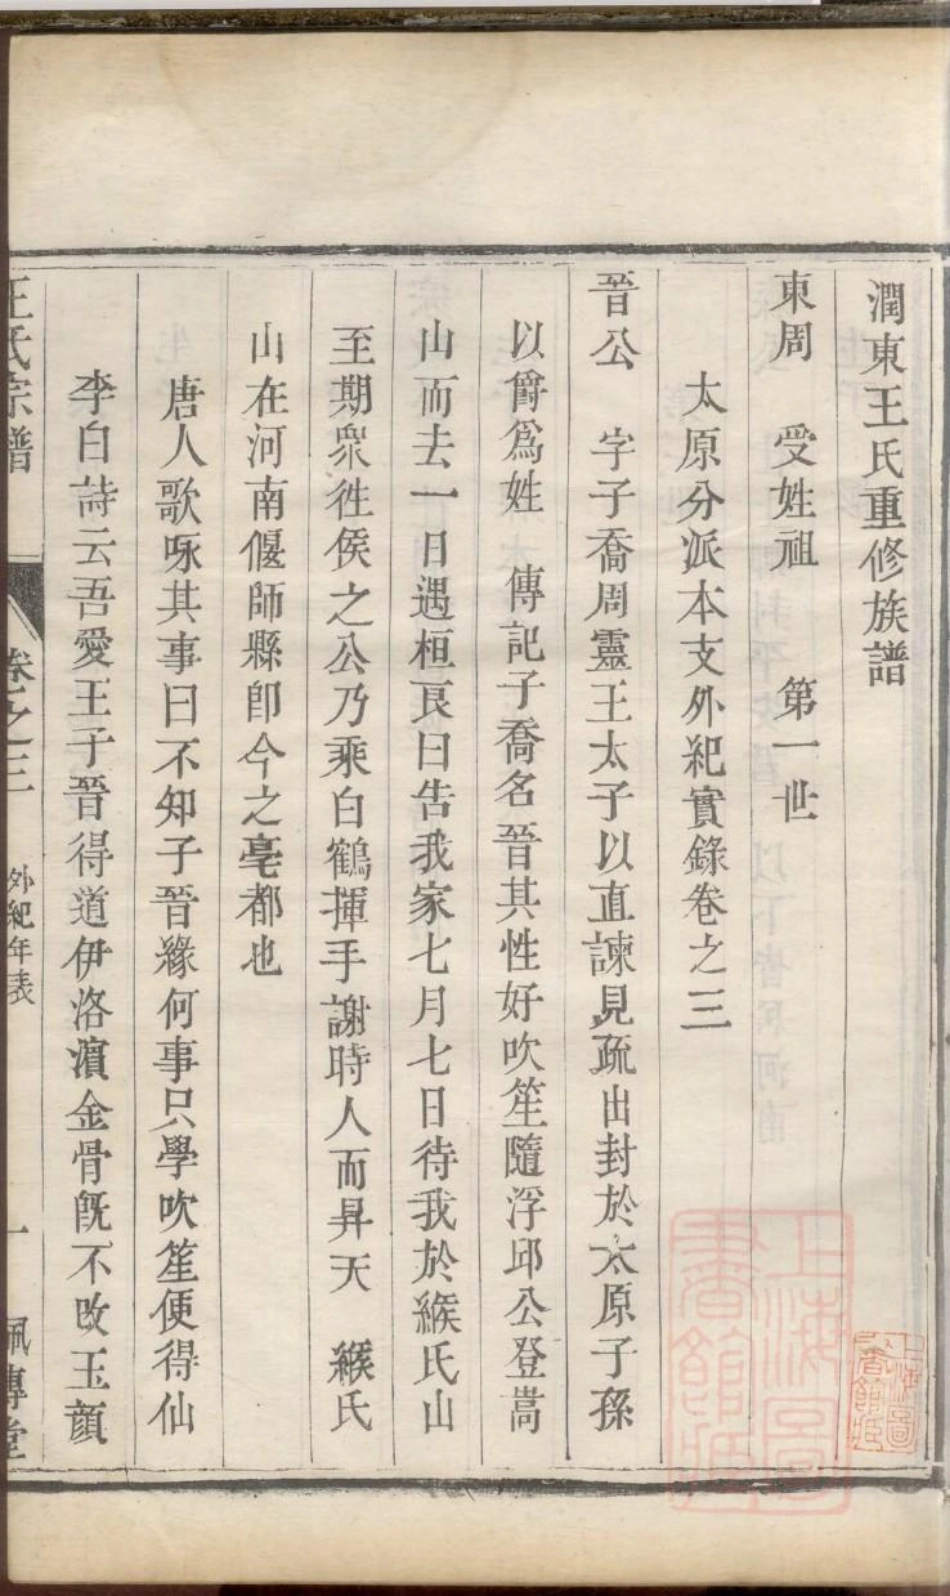 潤東王氏重修族譜
東周　受姓祖　第一世
太原分派本支外紀實錄卷之三
晉公　字子喬周靈王太子以直諫見疏出封於太原子孫
以爵爲姓　傳記子喬名晉其性好吹笙隨浮邱公登嵩
山而去一日遇桓良曰告我家七月七日待我於緱氏山
至期衆徃俟之公乃乘白鶴揮手謝時人而昇天　緱氏
山在河南偃師縣卽今之亳都也
唐人歌咏其事曰不知子晉緣何事只學吹笙便得仙
李白詩云吾愛王子晉得道伊洛濵金骨旣不改玉顔
王氏宗譜　卷之三　外紀年表　一　珮專堂
上海圖書館藏
上海圖書館藏